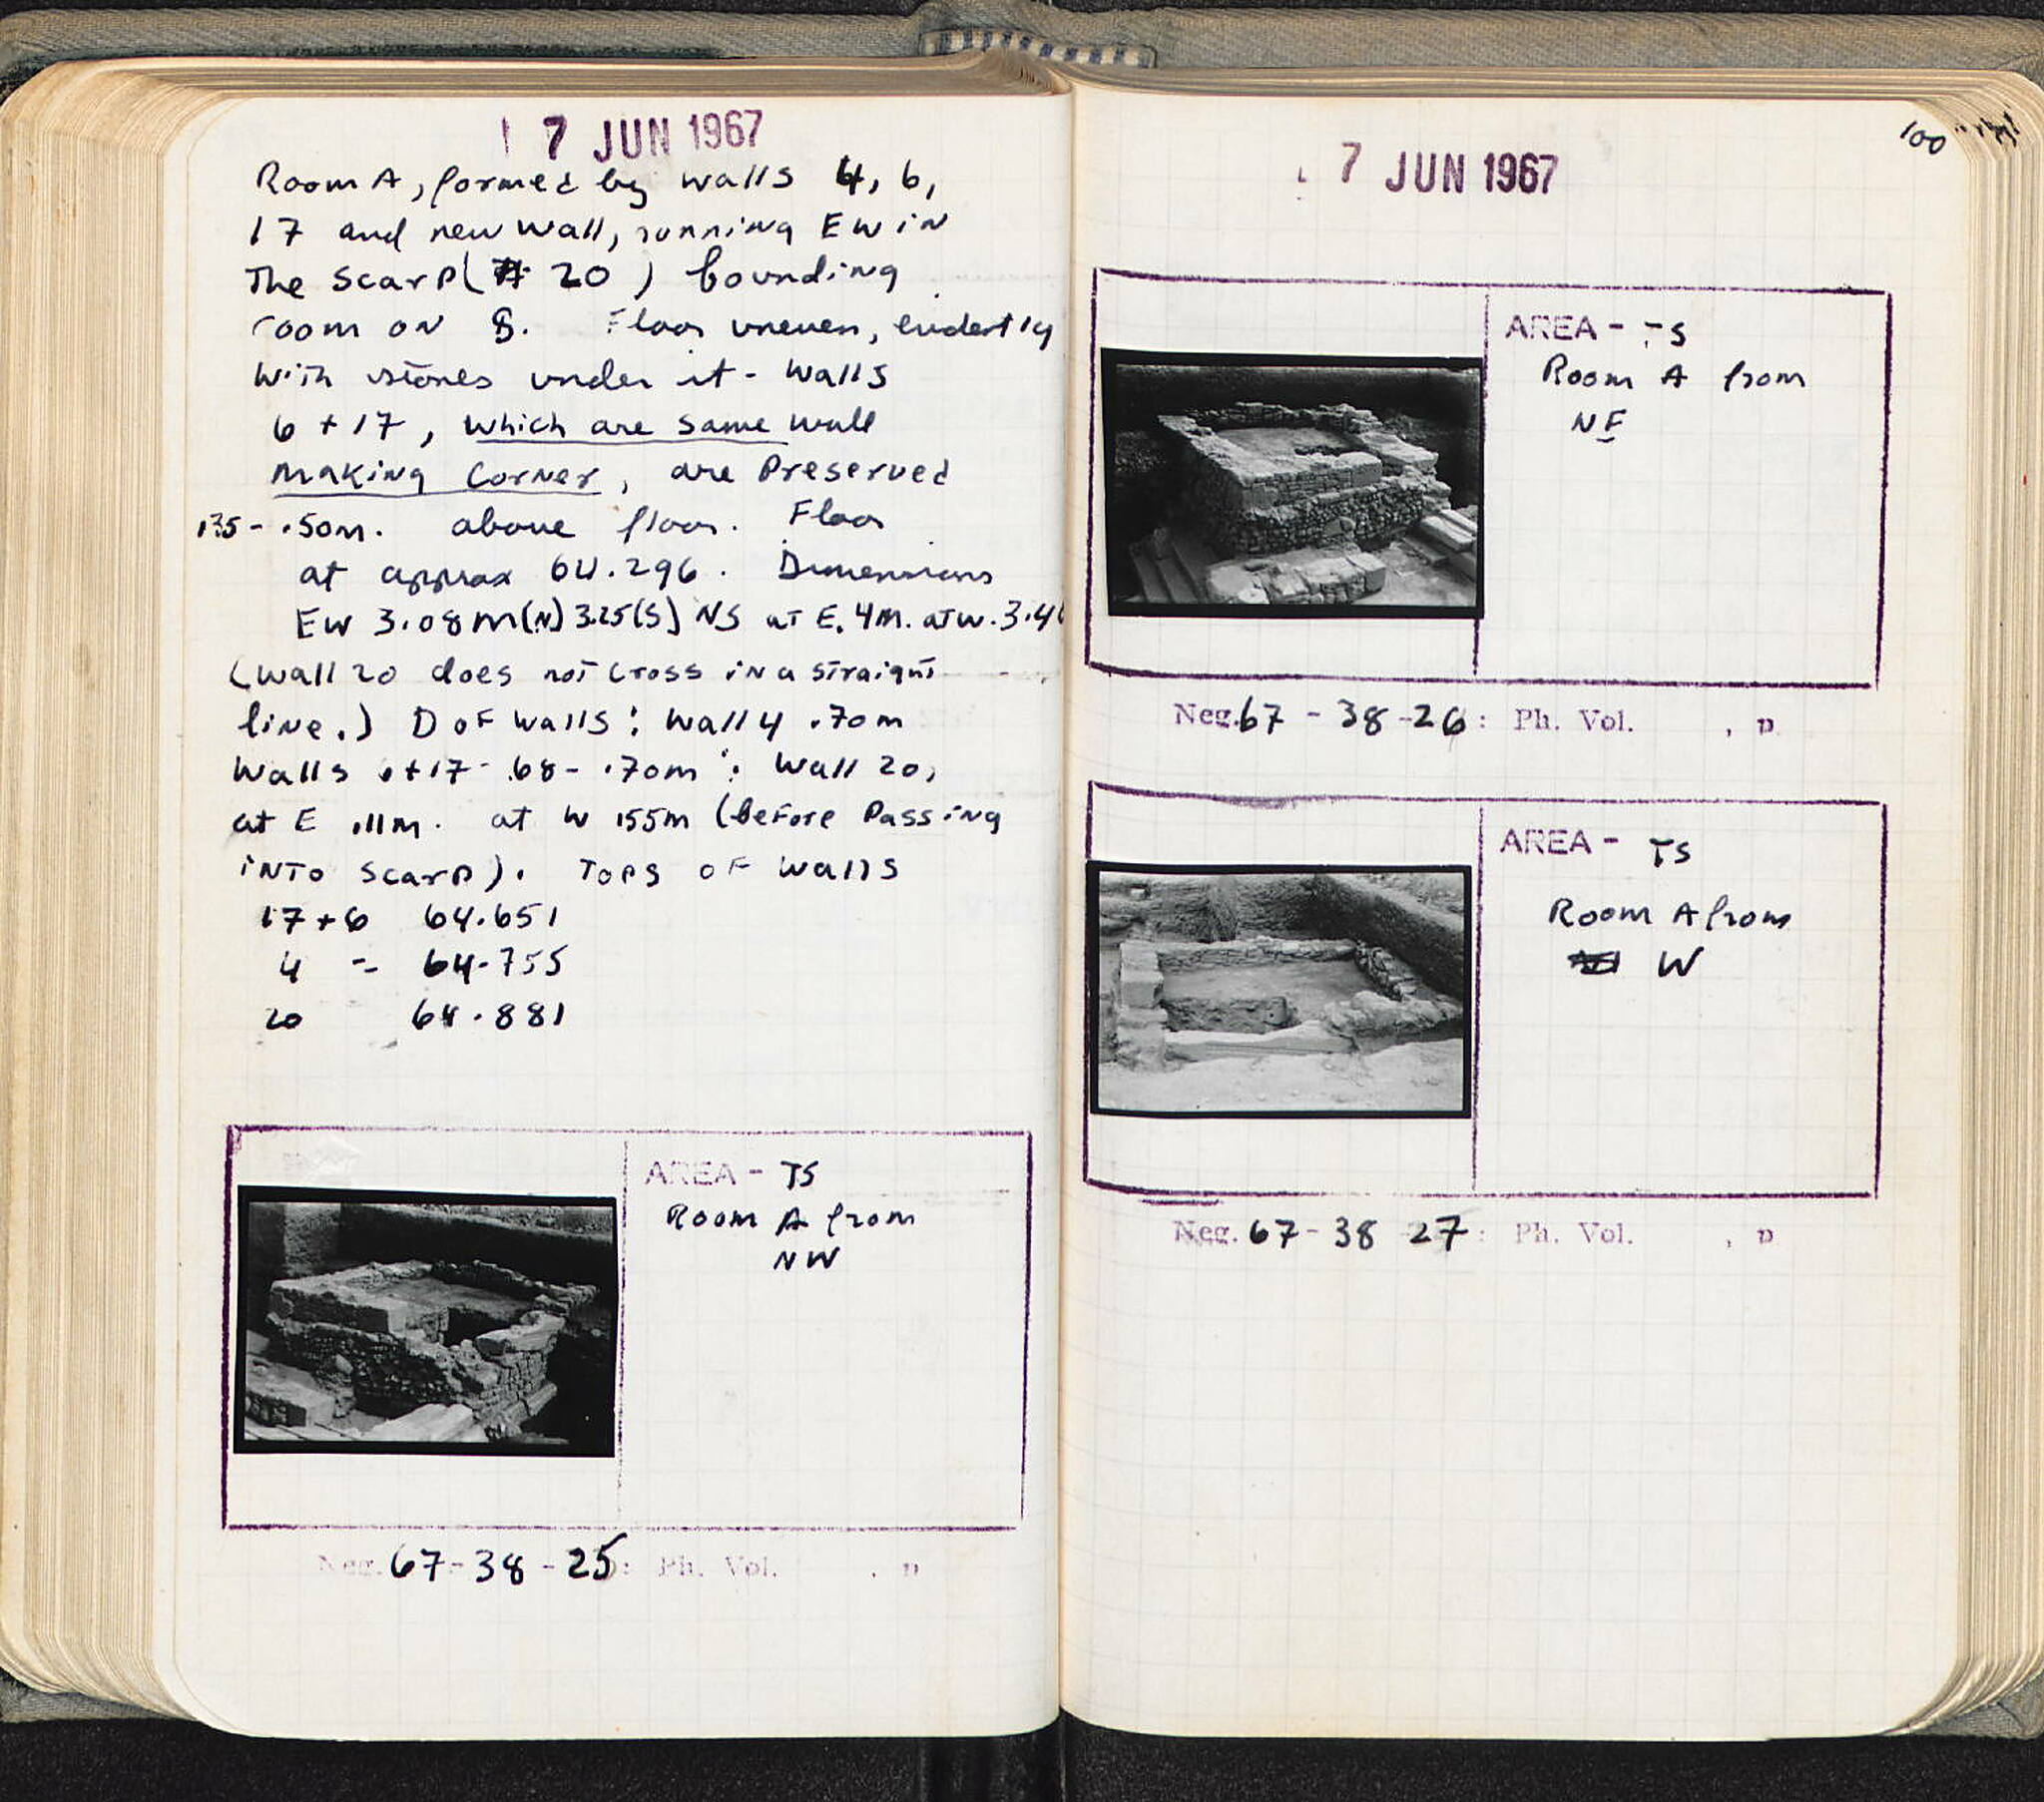 17 JUN 1967
Room A, formed by walls 4, 6,
17 and new wall, running EW in
the scarp (# 20) bounding
room on S. Floor uneven, evidently
with stones under it - walls
6 + 17, which are same wall
making corner, are preserved
.35 - .50m. above floor. Floor
at approx 64.296. Dimensions
EW 3.08m(N) 3.25(S) NS at E. 4m. at W. 3.4
(wall 20 does not cross in a straight
line.) D of walls: wall 4 .70m
walls 6+17 - .68 - .70m: wall 20,
at E .11m. at W .55m (before passing
into scarp). Tops of walls
17 + 6 64.651
4 - 64.755
20 64.881
AREA - TS
Room A from
NW
Neg. 67-38-25: Ph. Vol. , p
100
7 JUN 1967
AREA - TS
Room A from
NE
Neg. 67 - 38 - 26: Ph. Vol. , p
AREA - TS
Room A from
W
Neg. 67 - 38 27: Ph. Vol. , p